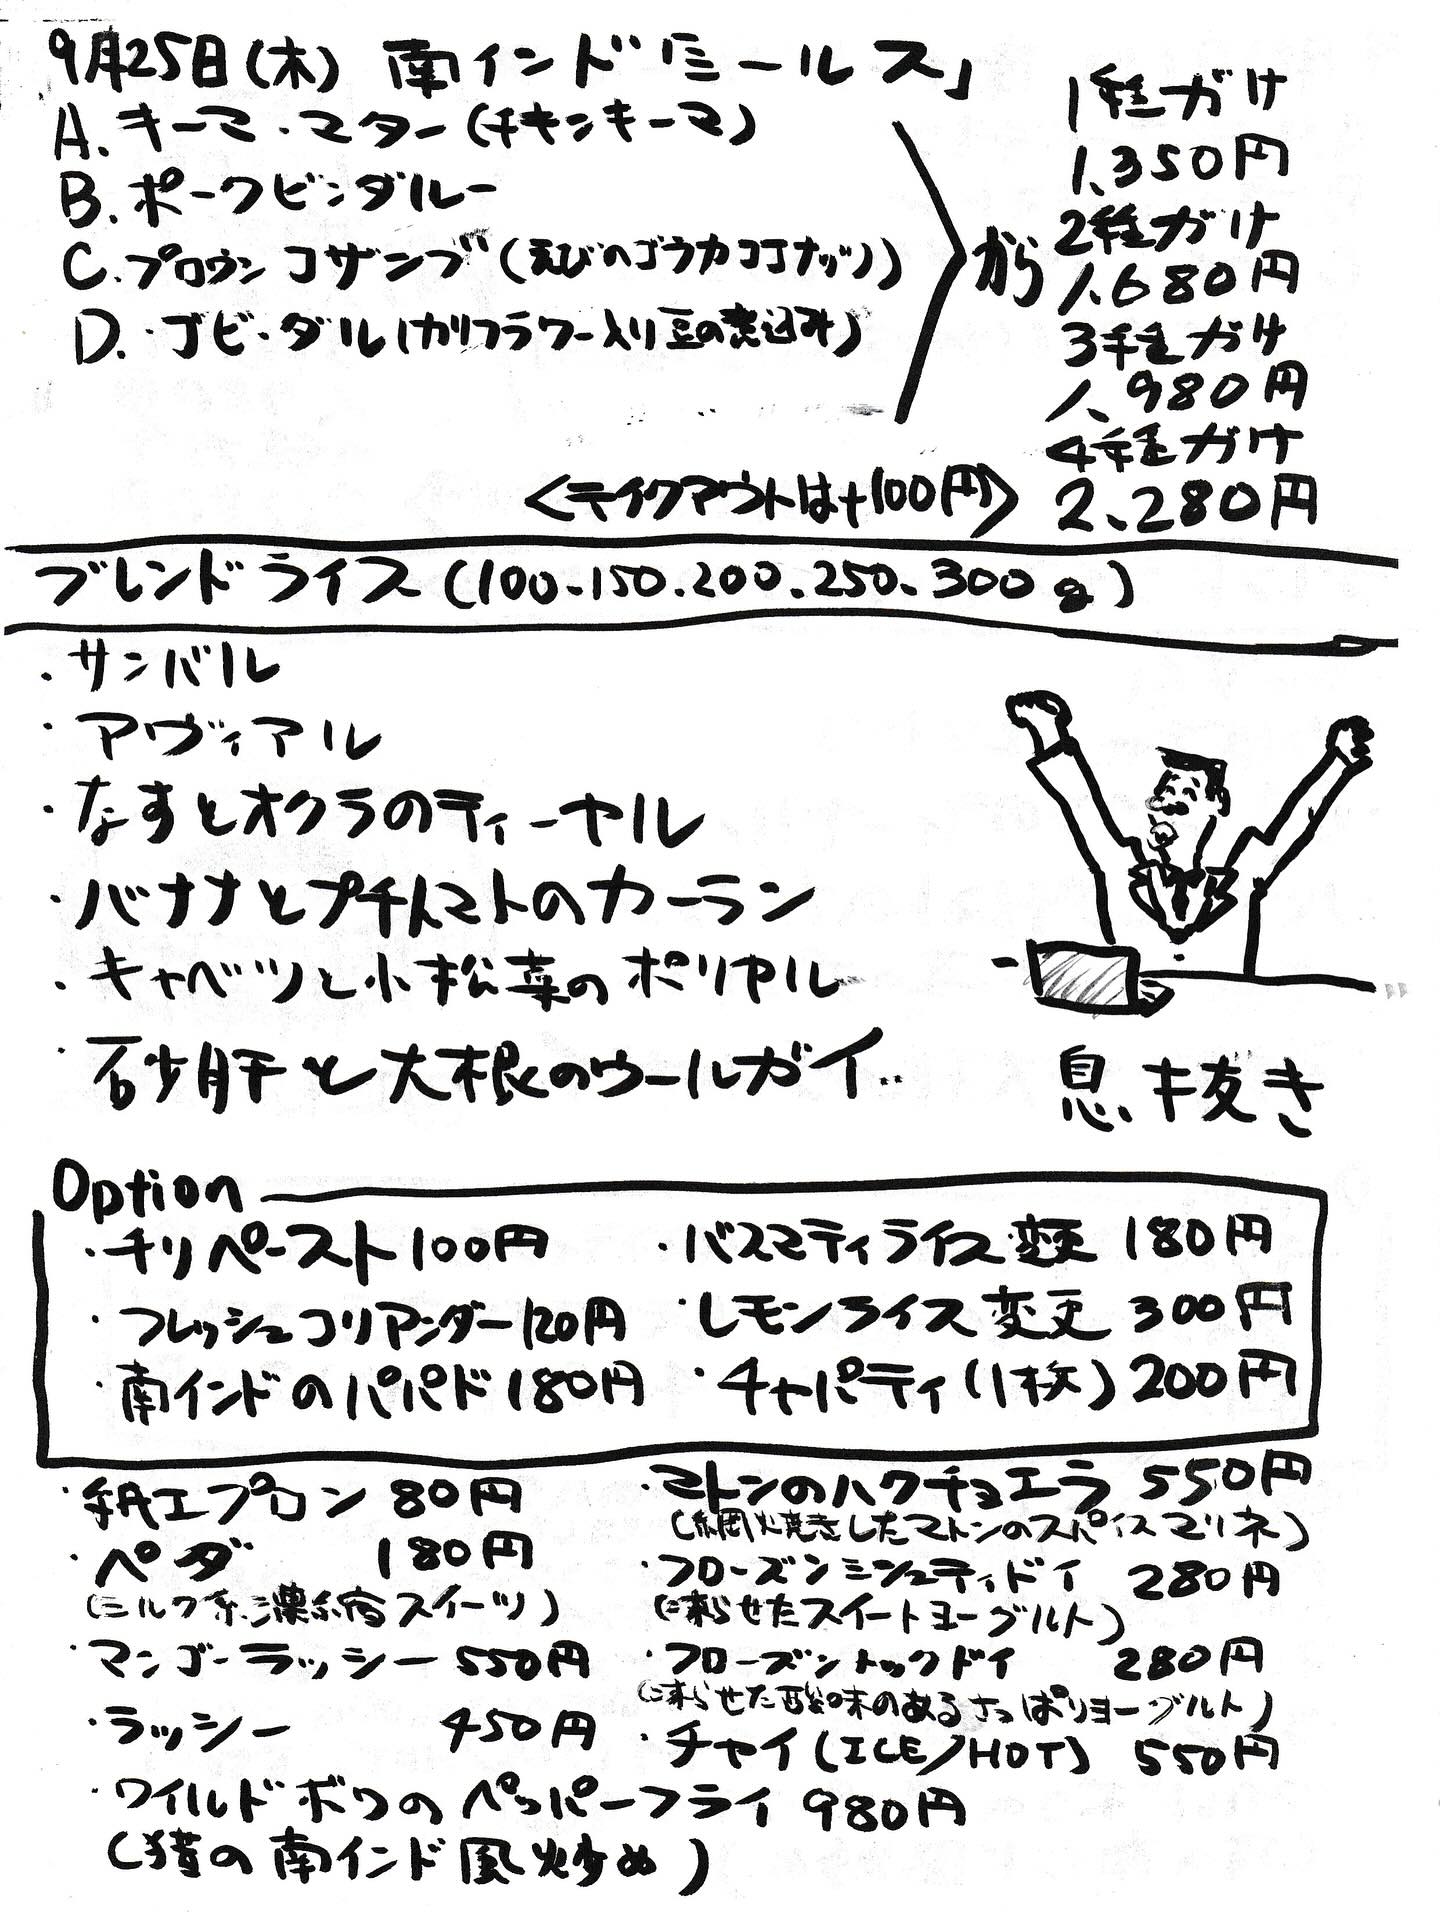 9月25日(木) 南インド「ミールス」
A. キーマ・マター(チキンキーマ)
B. ポークビンダルー
C. プロウンコザンブ(えびのゴウカココナッツ)
D. ゴビ・ダル(カリフラワー入り豆の煮込み)
から
1種がけ
1,350円
2種がけ
1,680円
3種がけ
1,980円
4種がけ
2,280円
<テイクアウトは+100円>
ブレンドライス(100.150.200.250.300g)
・サンバル
・アヴィアル
・なすとオクラのティーヤル
・バナナとプチトマトのカーラン
・キャベツと小松菜のポリヤル
・砂肝と大根のウールガイ
息抜き
Option
・チリペースト100円
・フレッシュコリアンダー120円
・南インドのパパド180円
・バスマティライス変更 180円
・レモンライス変更 300円
・チャパティ(1枚)200円
・紙エプロン 80円
・ペダ 180円
(ミルク系濃縮スイーツ)
・マンゴーラッシー 550円
・ラッシー 450円
・マトンのハクチョエラ 550円
(網焼きしたマトンのスパイスマリネ)
・フローズンミシュティドイ 280円
(凍らせたスイートヨーグルト)
・フローズントックドイ 280円
(凍らせた酸味のあるさっぱりヨーグルト)
・チャイ(ICE/HOT) 550円
・ワイルドボワのペッパーフライ 980円
(猪の南インド風炒め)